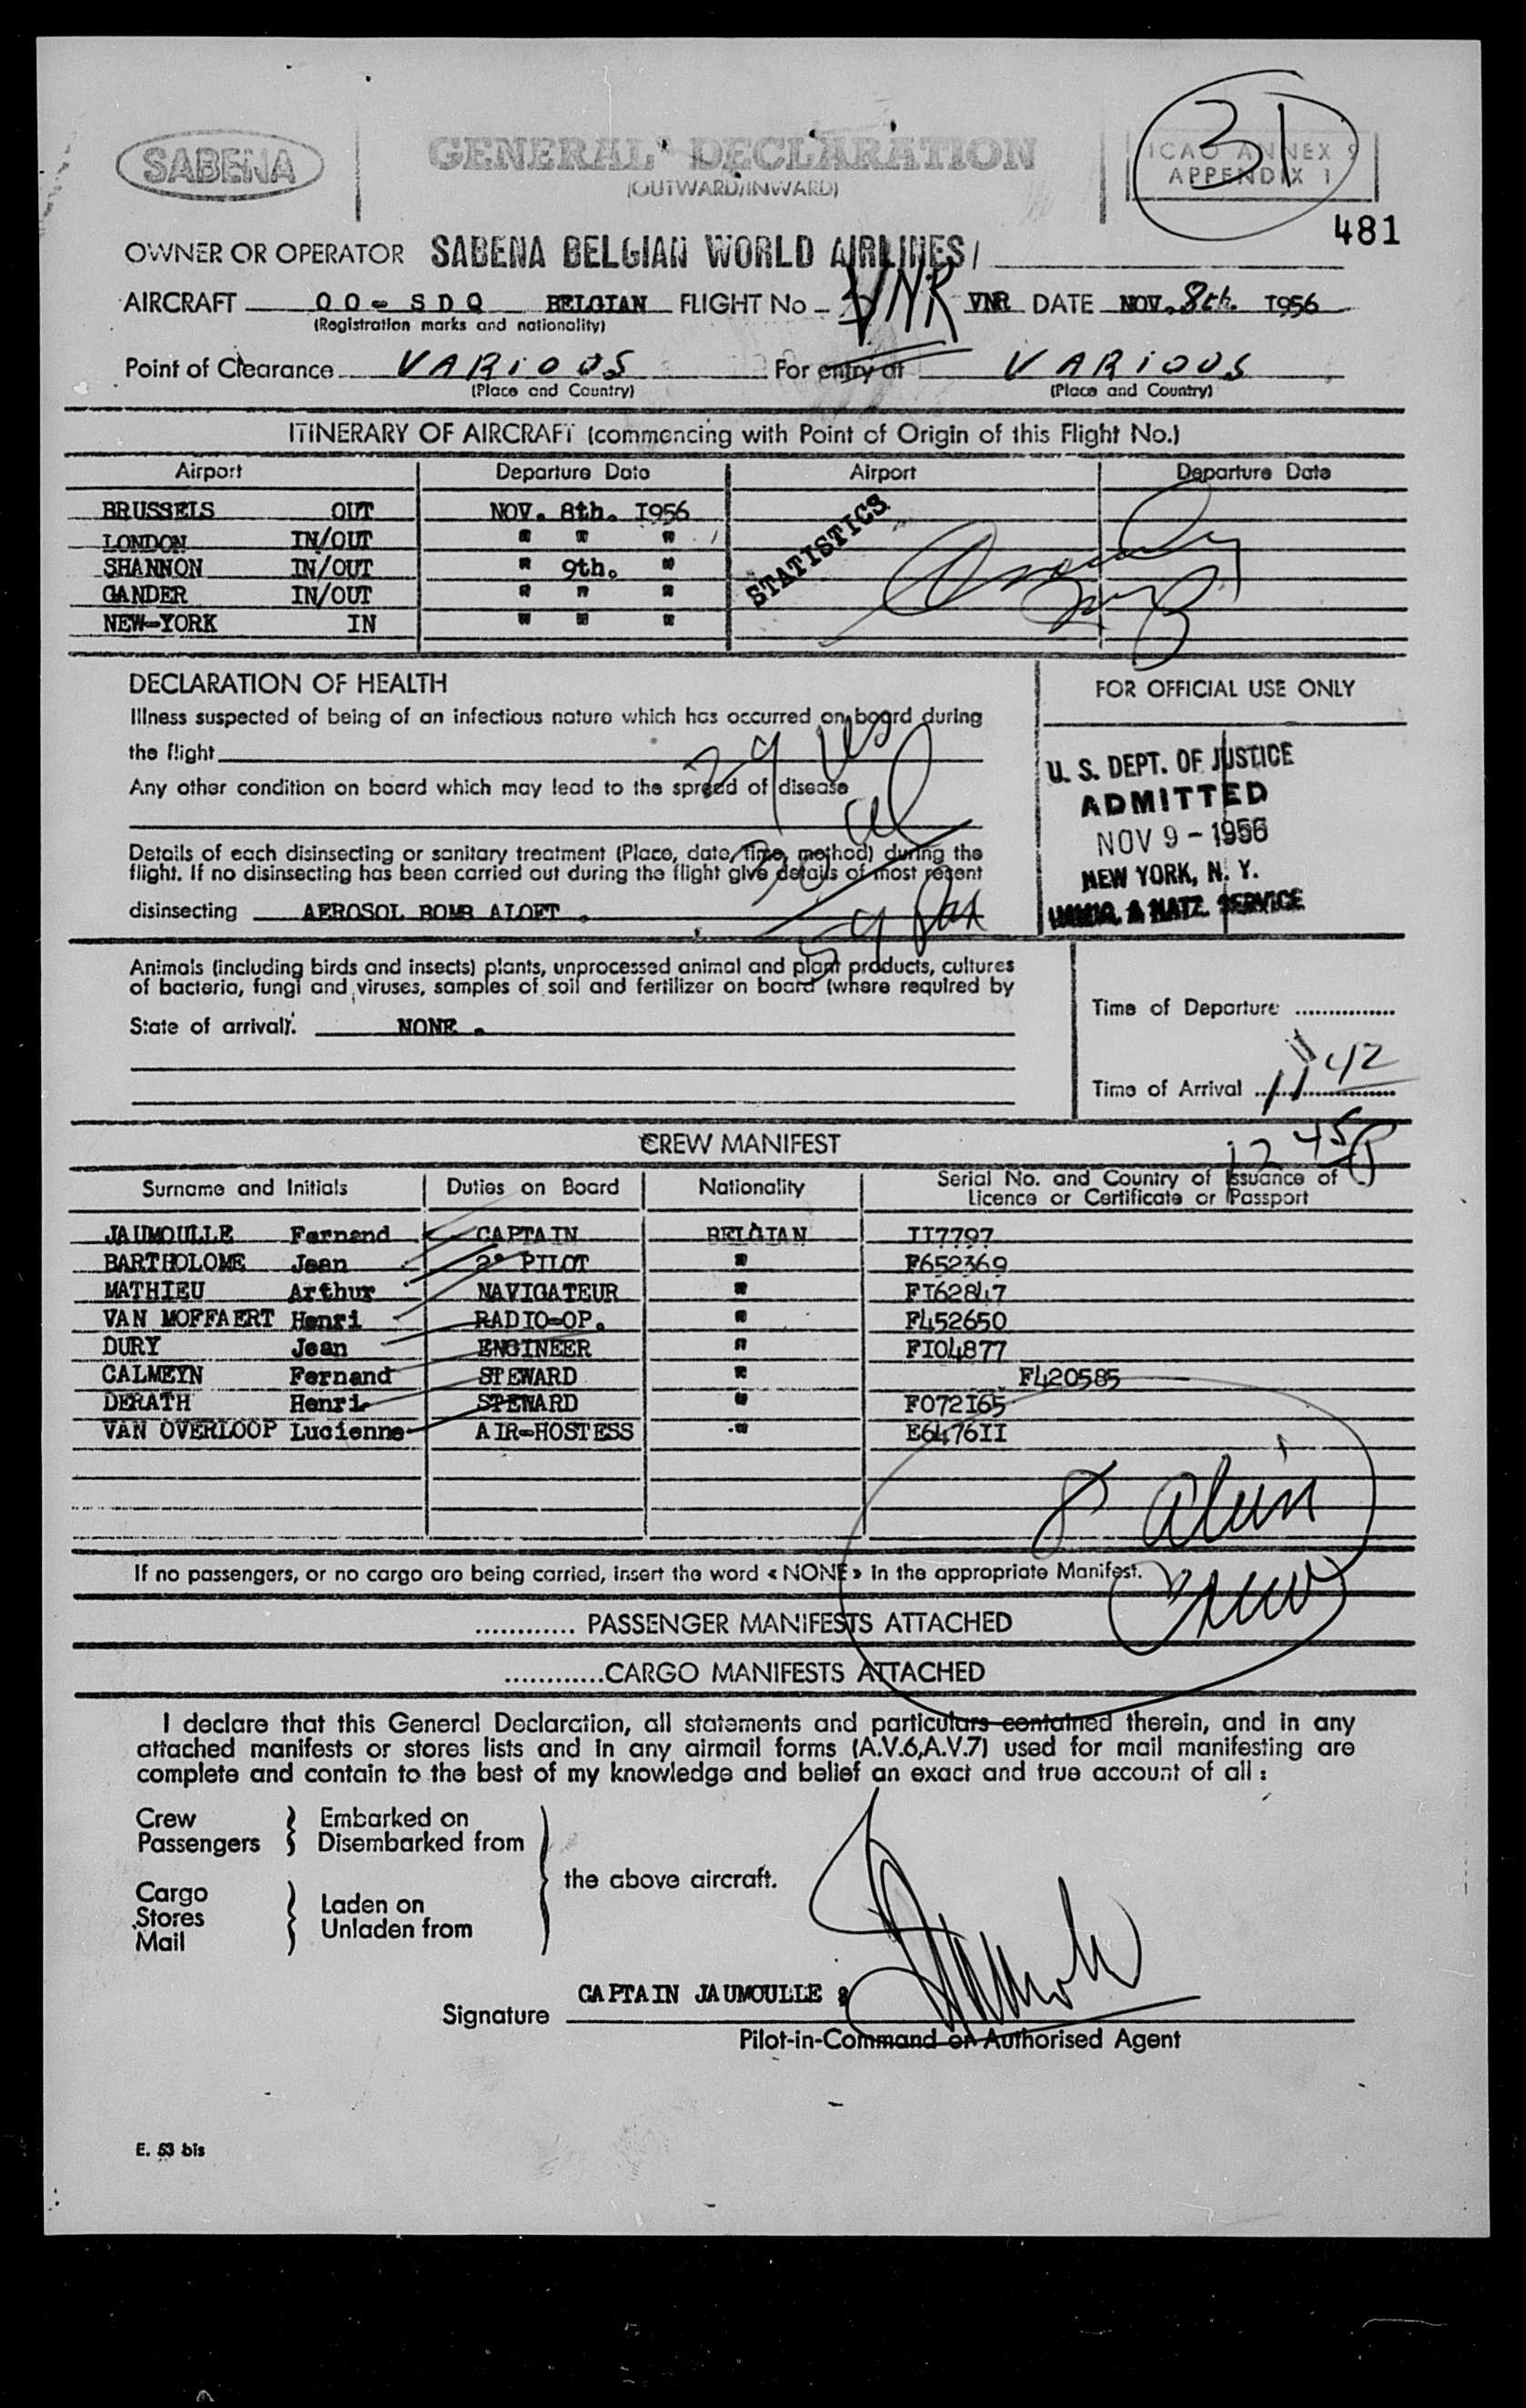 SABENA
GENERAL DECLARATION
(OUTWARD/INWARD)
ICAO ANNEX 9
APPENDIX 1
31
481
OWNER OR OPERATOR SABENA BELGIAN WORLD AIRLINES/
AIRCRAFT OO-SDQ BELGIAN FLIGHT No VNR VNR DATE NOV. 8th. I956
(Registration marks and nationality)
Point of Clearance VARIOUS For entry at VARIOUS
(Place and Country) (Place and Country)
ITINERARY OF AIRCRAFT (commencing with Point of Origin of this Flight No.)
Airport Departure Date Airport Departure Date
BRUSSELS OUT NOV. 8th. I956
LONDON IN/OUT " " "
SHANNON IN/OUT " 9th. "
GANDER IN/OUT " " "
NEW-YORK IN " " "
STATISTICS
DECLARATION OF HEALTH
FOR OFFICIAL USE ONLY
Illness suspected of being of an infectious nature which has occurred on board during
the flight
Any other condition on board which may lead to the spread of disease
Details of each disinsecting or sanitary treatment (Place, date, time, method) during the
flight. If no disinsecting has been carried out during the flight give details of most recent
disinsecting AEROSOL BOMB ALOFT .
U. S. DEPT. OF JUSTICE
ADMITTED
NOV 9 - 1956
NEW YORK, N. Y.
IMMIG. & NATZ. SERVICE
Animals (including birds and insects) plants, unprocessed animal and plant products, cultures
of bacteria, fungi and viruses, samples of soil and fertilizer on board (where required by
State of arrival). NONE .
Time of Departure ...............
Time of Arrival 11 42
12 45 P
CREW MANIFEST
Surname and Initials Duties on Board Nationality Serial No. and Country of Issuance of
Licence or Certificate or Passport
JAUMOULLE Fernand CAPTAIN BELGIAN II7797
BARTHOLOME Jean 2° PILOT " F652369
MATHIEU Arthur NAVIGATEUR " FI62847
VAN MOFFAERT Henri RADIO-OP. " F452650
DURY Jean ENGINEER " FI04877
CALMEYN Fernand STEWARD " F420585
DERATH Henri STEWARD " F072I65
VAN OVERLOOP Lucienne AIR-HOSTESS " E6476II
8 alien
crew
If no passengers, or no cargo are being carried, insert the word « NONE » in the appropriate Manifest.
............ PASSENGER MANIFESTS ATTACHED
............CARGO MANIFESTS ATTACHED
I declare that this General Declaration, all statements and particulars contained therein, and in any
attached manifests or stores lists and in any airmail forms (A.V.6,A.V.7) used for mail manifesting are
complete and contain to the best of my knowledge and belief an exact and true account of all :
Crew Embarked on
Passengers Disembarked from
the above aircraft.
Cargo Laden on
Stores Unladen from
Mail
CAPTAIN JAUMOULLE
Signature
Pilot-in-Command or Authorised Agent
E. 53 bis